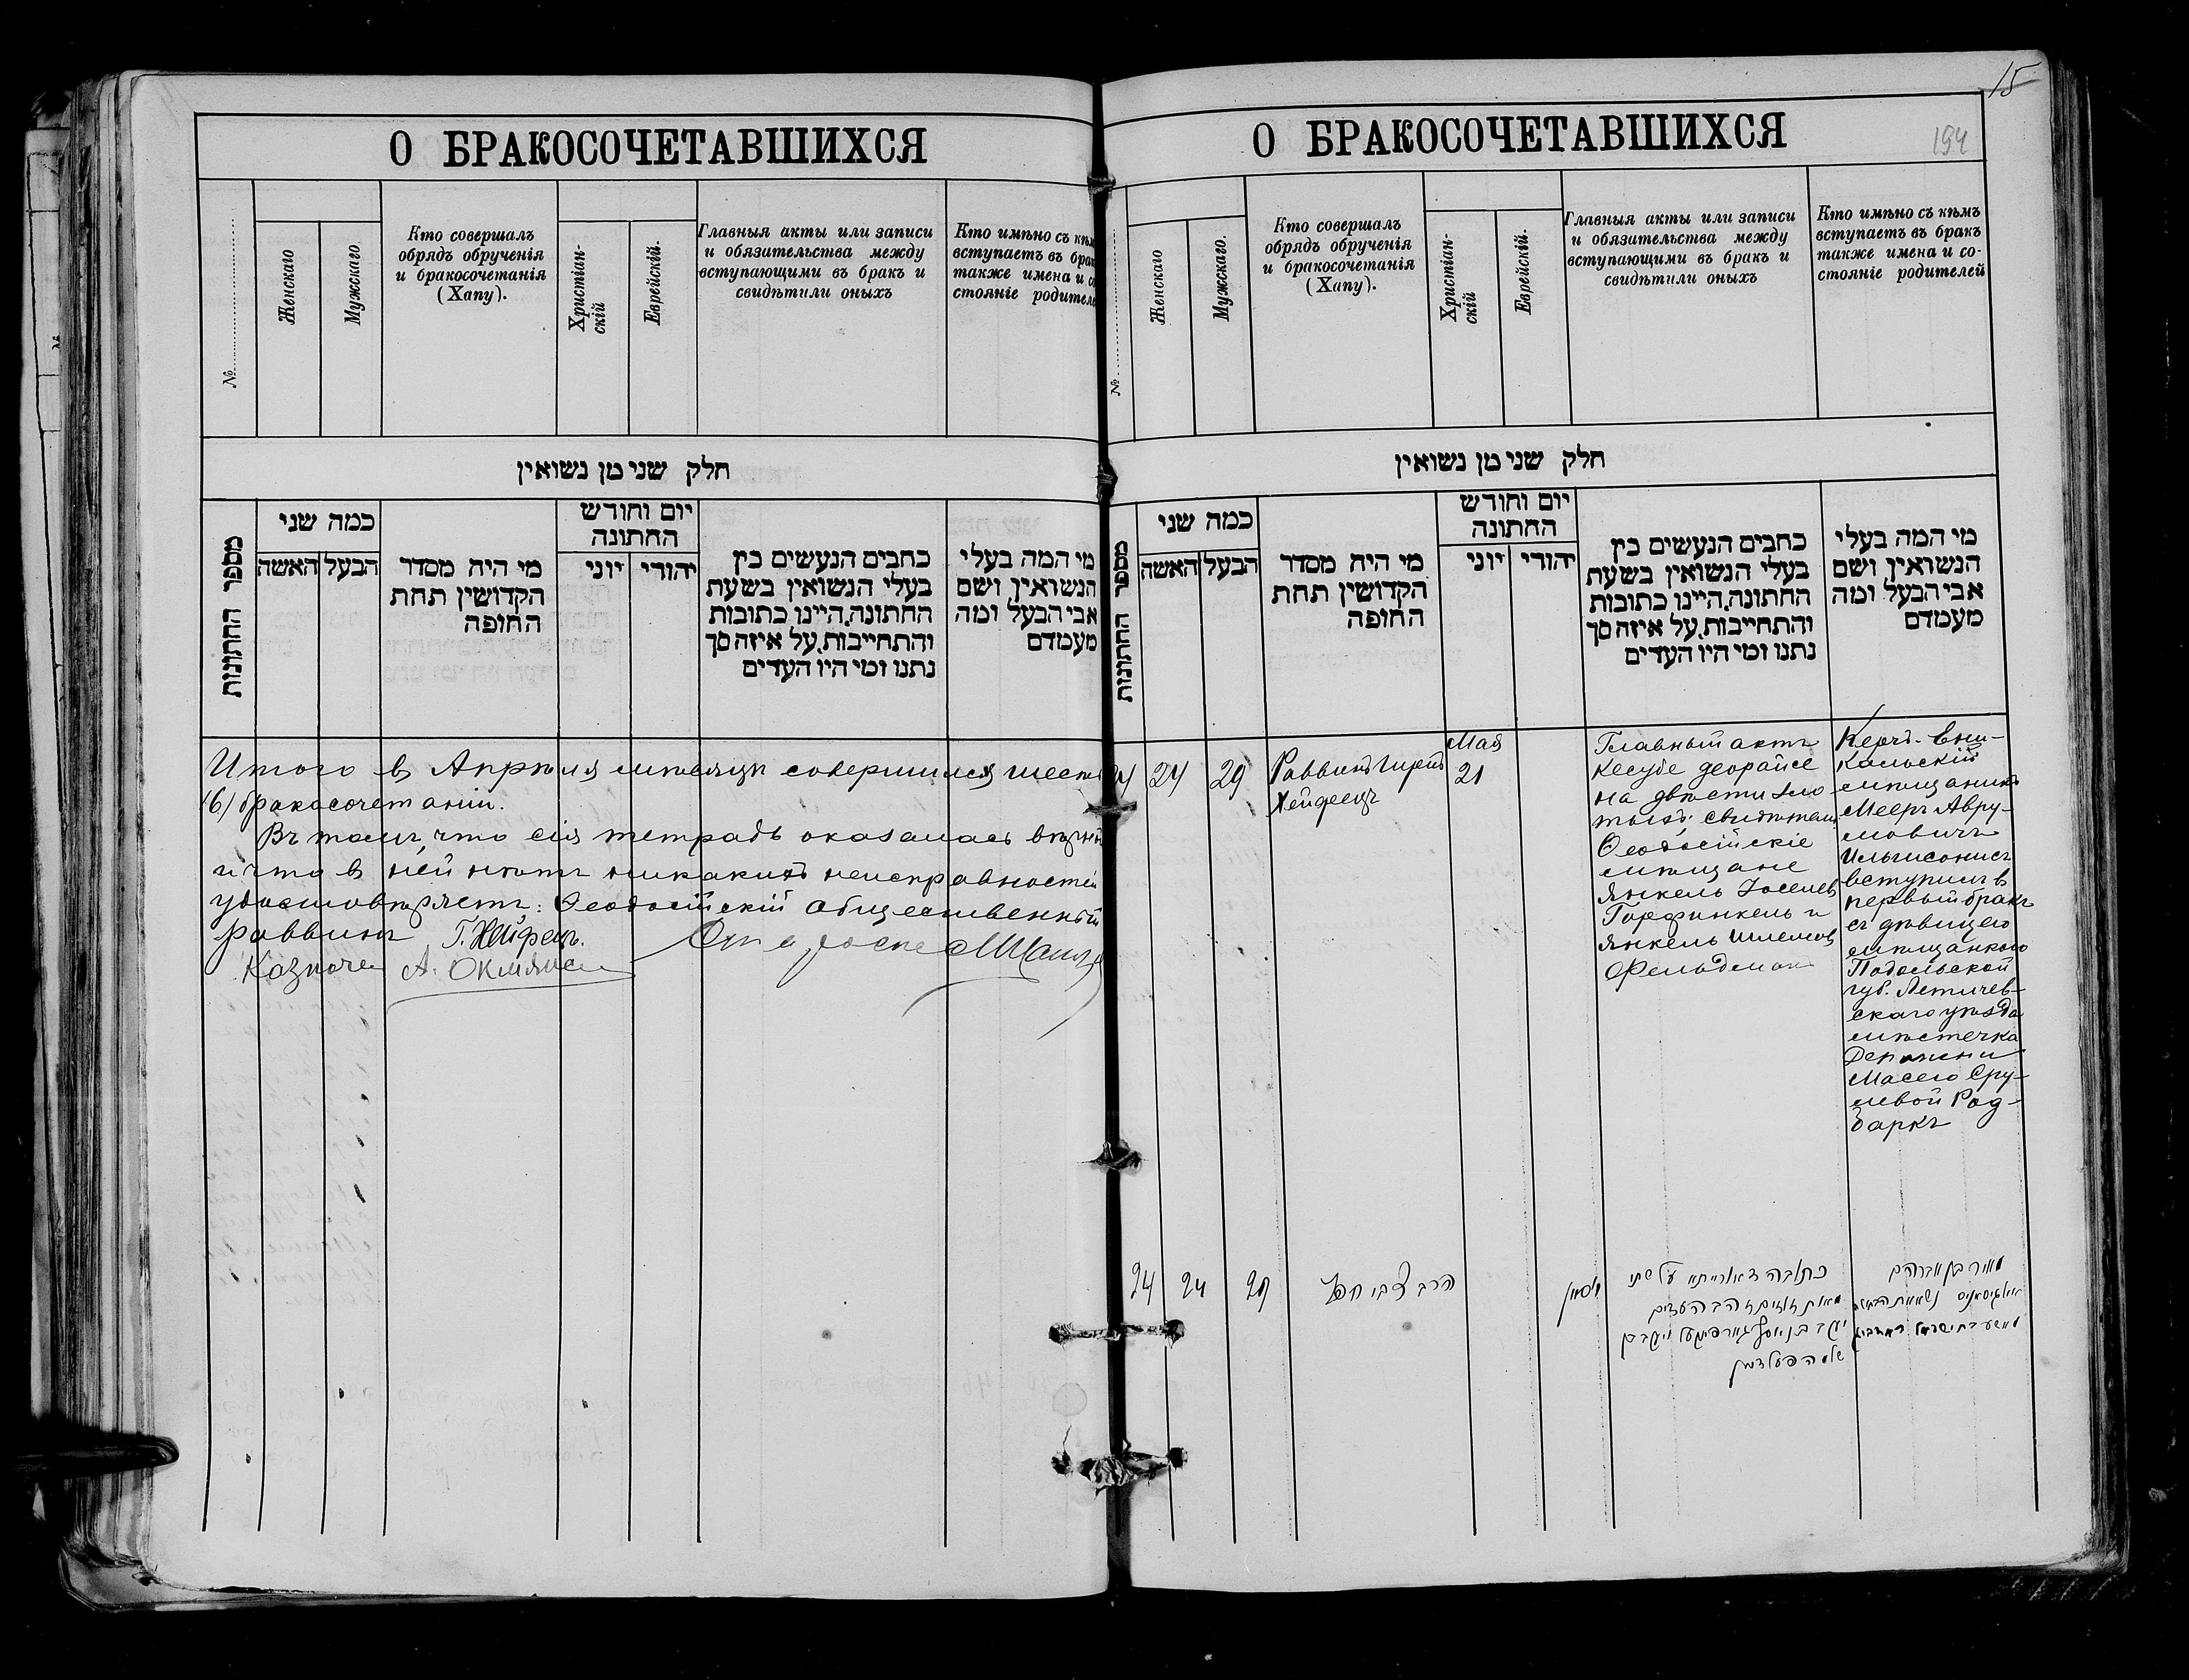 О БРАКОСОЧЕТАВШИХСЯ
№
Женскаго
Мужскаго
Кто совершалъ
обрядъ обрученія
и бракосочетанія
(Хапу).
Христіан-
скій
Еврейскій.
Главныя акты или записи
и обязательства между
вступающими въ бракъ и
свидѣтили оныхъ
Кто имѣно съ кѣмъ
вступаетъ въ брак
также имена и со
стояніе родителе
חלק שני מן נשואין
מספר החתונות
כמה שני
האשה
הבעל
מי היה מסדר
הקדושין תחת
החופה
יום וחודש
החתונה
יוני
יהודי
כתבים הנעשים בין
בעלי הנשואין בשעת
החתונה.היינו כתובות
והתחייבות.על איזה סך
נתנו ומי היו העדים
מי המה בעלי
הנשואין ושם
אבי הבעל ומה
מעמדם
Итого в Апрѣля мѣсяцѣ совершился шесть
(6) бракосочетаній.
Въ томъ, что сія тетрадь оказалась вѣрной
и что в ней нѣтъ никакихъ неисправностей
удостовѣряетъ: Ѳеодосійскій Общественный
раввинъ Г. Хейфецъ.
Казначей А.
15
194
О БРАКОСОЧЕТАВШИХСЯ
№
Женскаго
Мужскаго.
Кто совершалъ
обрядъ обрученія
и бракосочетанія
(Хапу).
Христіан-
скій
Еврейскій.
Главныя акты или записи
и обязательства между
вступающими въ бракъ и
свидѣтили оныхъ
Кто имѣно съ кѣмъ
вступаетъ въ бракъ
также имена и со-
стояніе родителей
חלק שני מן נשואין
מספר החתונות
כמה שני
האשה
הבעל
מי היה מסדר
הקדושין תחת
החופה
יום וחודש
החתונה
יוני
יהודי
כתבים הנעשים בין
בעלי הנשואין בשעת
החתונה.היינו כתובות
והתחייבות.על איזה סך
נתנו ומי היו העדים
מי המה בעלי
הנשואין ושם
אבי הבעל ומה
מעמדם
24
24
29
Раввинъ Гиршъ
Хейфецъ
Мая
21
Главный актъ
кесубе деорайсе
на двѣсти зло-
тыхъ; свидѣтели
Ѳеодосійскіе
мѣщане
Янкель Іоселев
Горфинкель и
Янкель Шлемов
Фельдман
Керчъ-Ени-
кальскій
мѣщанинъ
Мееръ Авру-
мовичъ
вступилъ в
первый бракъ
съ дѣвицею
мѣщанкою
Подольской
губ. Летичев-
скаго уѣзда
мѣстечка
Деражни
Масею Сру-
левой Род-
баркъ
24
24
29
הרב צבי חפץ
סיון
כתובה דאורייתא על שתי
מאות זהב העדים
יעקב בן יוסף גורפינקעל ויעקב בן
שלמה פעלדמן
מאיר בן אברהם